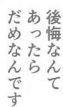 後悔なんて
あったら
だめなんです